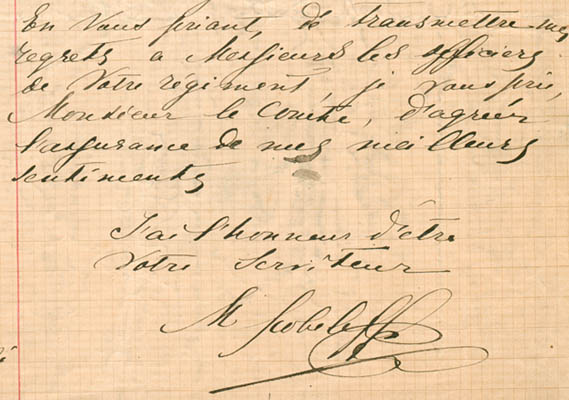 En vous priant, de transmettre mes
regrets a Messieurs les officiers
de Votre régiment, je vous prie,
Monsieur le Comte, d'agréer
l'assurance de mes meilleurs
sentiments
J'ai l'honneur d'être
Votre Serviteur
M Skobeleff